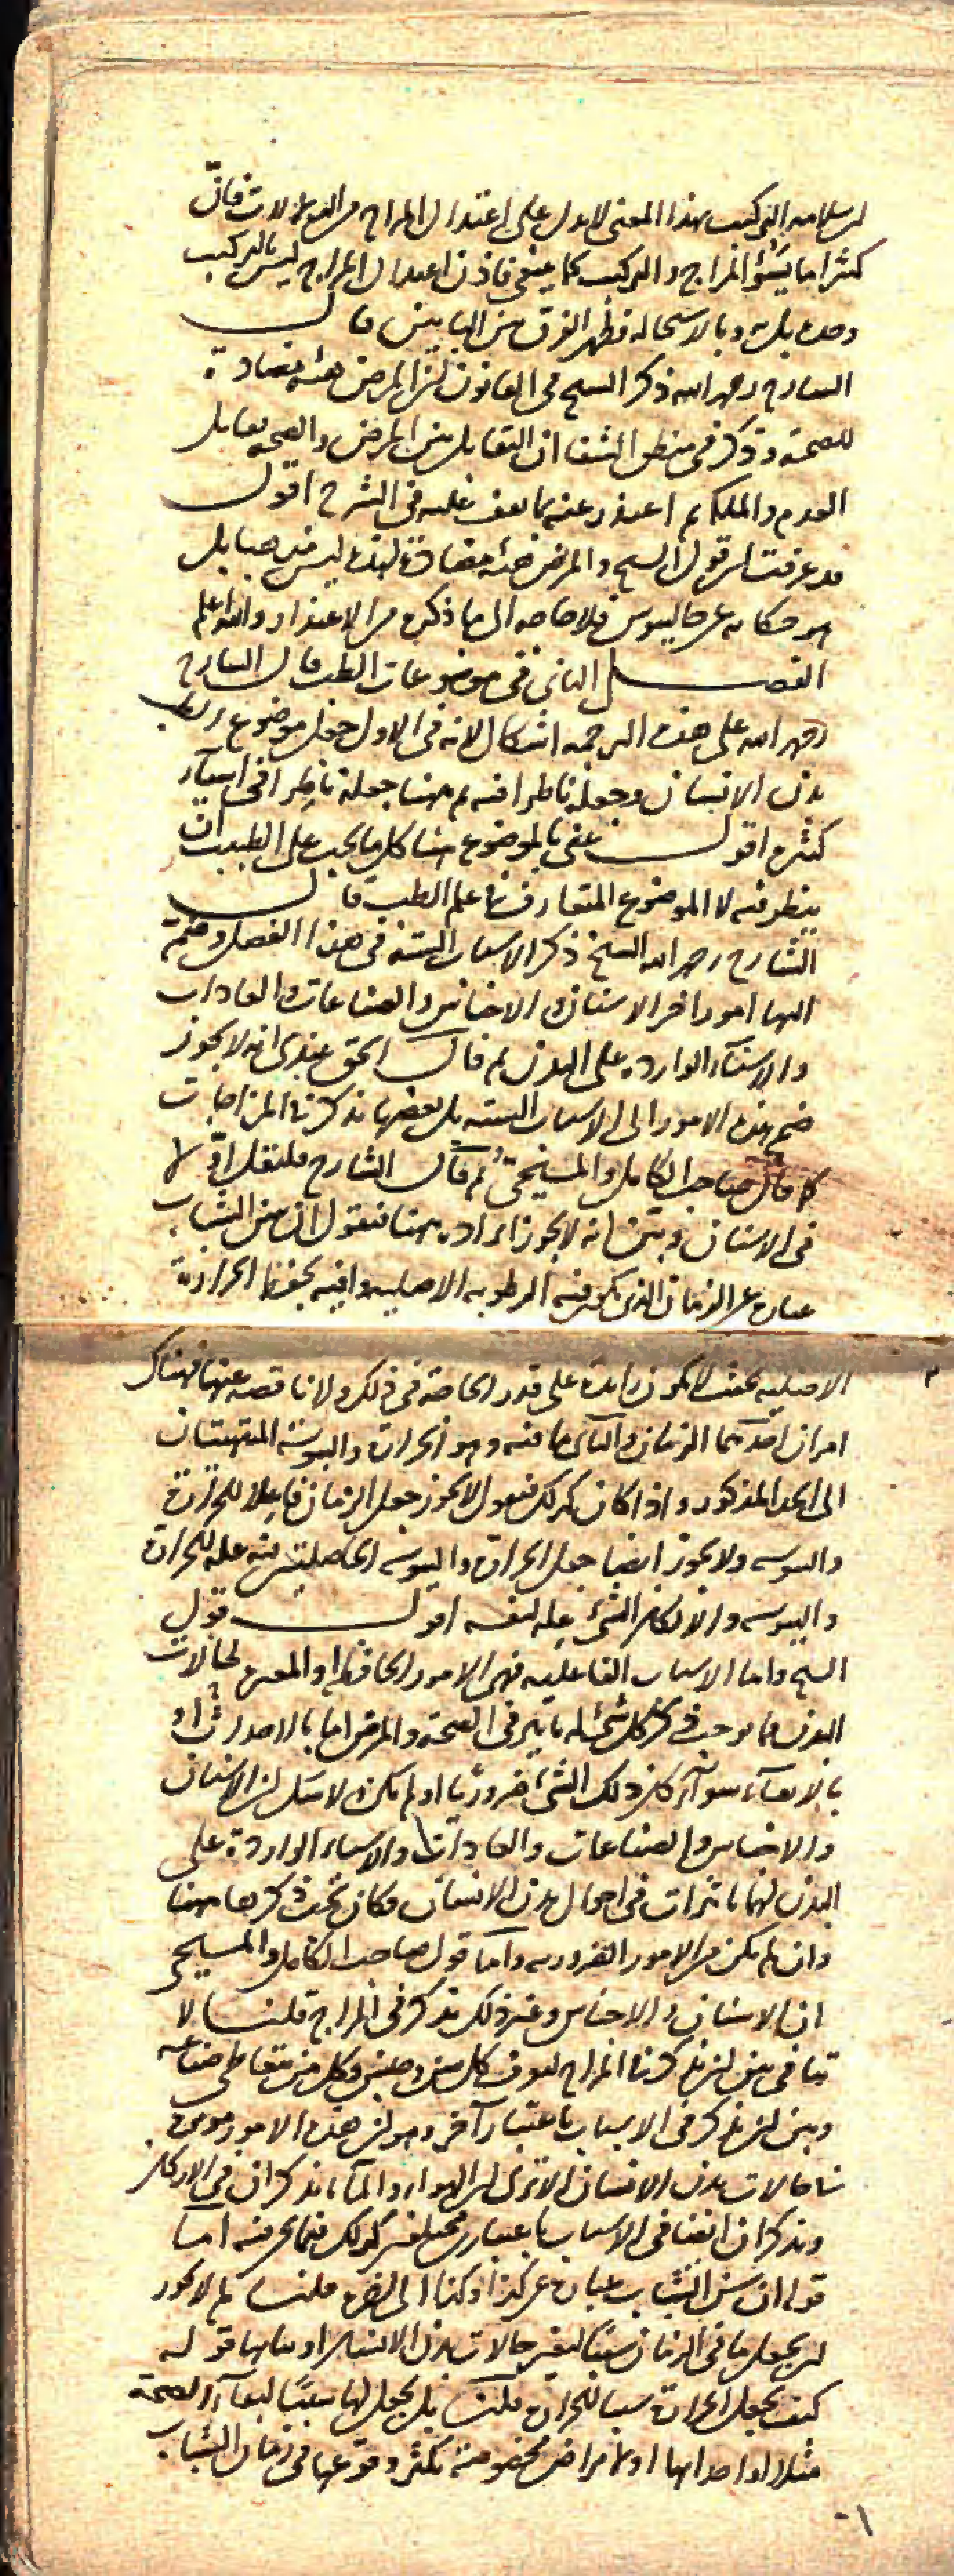 لسلامة التركيب بهذا المعنى لا يدل على اعتدال المزاج فان
كثيرا ما يسوء المزاج والتركيب كما ينبغي فاذن اعتدال المزاج ليس بالتركيب
وحده بل به وبالاستحالة فظهر الفرق بين البابين قال
الشارح رحمه الله ذكر الشيخ في القانون ان المرض هيئة مضادة
للصحة وذكر في منطق الشفا ان التقابل بين المرض والصحة تقابل
العدم والملكة ثم اعتذر عنه بما يقف عليه في الشرح اقول
قد عرفت ان قول الشيخ والمرض هيئة مضادة لهذه ليس من
هو حكاية عن جالينوس فلا حاجة الى ما ذكره من الاعتذار والله اعلم
الفصل الثاني في موضوعات الطب قال الشارح
رحمه الله على هذه الترجمة اشكال لانه في الاول جعل موضوع الطب
بدن الانسان وجعله ناظرا فيه ثم ههنا جعله ناظرا في اشياء
كثيرة اقول عنى بالموضوع هنا كل ما يجب على الطبيب ان
ينظر فيه لا الموضوع المتعارف علم الطب قال
الشارح رحمه الله الشيخ ذكر الاسباب الستة في هذا الفصل وضم
اليها امورا اخر الاسنان والاجناس والصناعات والعادات
والاشياء الواردة على البدن ثم قال الحق عندي انه لا يجوز
ضم هذه الامور الى الاسباب الستة بل بعضها يذكر في المزاجات
كما قال صاحب الكامل والمسيحي ثم قال الشارح فلنقل اولا
في الاسنان ونبين انه لا يجوز ايراده ههنا فنقول ان سن الشباب
عبارة عن الزمان الذي تكون فيه الرطوبة الاصلية وافية بحفظ الحرارة
الاصلية بحيث لا تكون زائدة على قدر الحاجة في ذلك ولا ناقصة عنها فهناك
امران احدهما الزمان والثاني ما فيه وهو الحرارة واليبوسة المنتهيتان
الى الحد المذكور واذا كان كذلك فنقول لا يجوز جعل الزمان فاعلا للحرارة
واليبوسة ولا يجوز ايضا جعل الحرارة واليبوسة الحاصلتين فيه علة للحرارة
واليبوسة والا لكان الشيء علة لنفسه اقول قول
الشيخ واما الاسباب الفاعلية فهي الامور الحافظة او المغيرة لحالات
البدن مما يوجب ذكر كل شيء له تاثير في الصحة والمرض اما بالاحداث او
بالابقاء سواء كان ذلك الشيء ضروريا او لم يكن ولا شك ان الاسنان
والاجناس والصناعات والعادات والاشياء الواردة على
البدن لها تاثيرات في احوال بدن الانسان فكان يجب ذكرها ههنا
وان لم تكن من الامور الضرورية واما قول صاحب الكامل والمسيحي
ان الاسنان والاجناس وغير ذلك يذكر في المزاج قلنا لا
تنافي بين ان يذكر في المزاج ليعرف كل سن وجنس وكل من يتعاطى صناعة
وبين ان يذكر في الاسباب باعتبار آخر وهو ان هذه الامور موثرة
في حالات بدن الانسان الا ترى ان الهواء والماء يذكران في الاركان
ويذكران ايضا في الاسباب باعتبارين مختلفين كذلك فيما نحن فيه اما
قوله ان سن الشباب عبارة عن كذا وكذا الى اخره قلنا لم لا يجوز
ان يجعل ما في الزمان سببا لبعض حالات بدن الانسان او بقائها قوله
كيف يجعل الحرارة سببا للحرارة قلنا بل يجعل لها سببا لبقاء الصحة
مثلا او احداثها او لامراض مخصوصة تكثر وقوعها في زمان الشباب